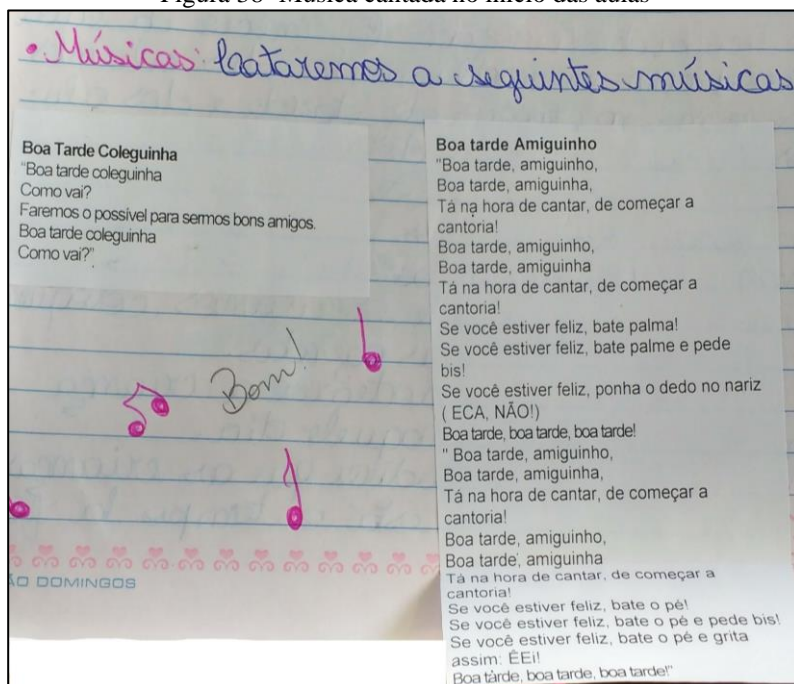 • Músicas: Cataremos a seguintes músicas
Boa Tarde Coleguinha
"Boa tarde coleguinha
Como vai?
Faremos o possível para sermos bons amigos.
Boa tarde coleguinha
Como vai?"
Bom!
Boa tarde Amiguinho
"Boa tarde, amiguinho,
Boa tarde, amiguinha,
Tá na hora de cantar, de começar a
cantoria!
Boa tarde, amiguinho,
Boa tarde, amiguinha
Tá na hora de cantar, de começar a
cantoria!
Se você estiver feliz, bate palma!
Se você estiver feliz, bate palme e pede
bis!
Se você estiver feliz, ponha o dedo no nariz
( ECA, NÃO!)
Boa tarde, boa tarde, boa tarde!
" Boa tarde, amiguinho,
Boa tarde, amiguinha,
Tá na hora de cantar, de começar a
cantoria!
Boa tarde, amiguinho,
Boa tarde, amiguinha
Tá na hora de cantar, de começar a
cantoria!
Se você estiver feliz, bate o pé!
Se você estiver feliz, bate o pé e pede bis!
Se você estiver feliz, bate o pé e grita
assim: ÊEi!
Boa tarde, boa tarde, boa tarde!"
ÃO DOMINGOS